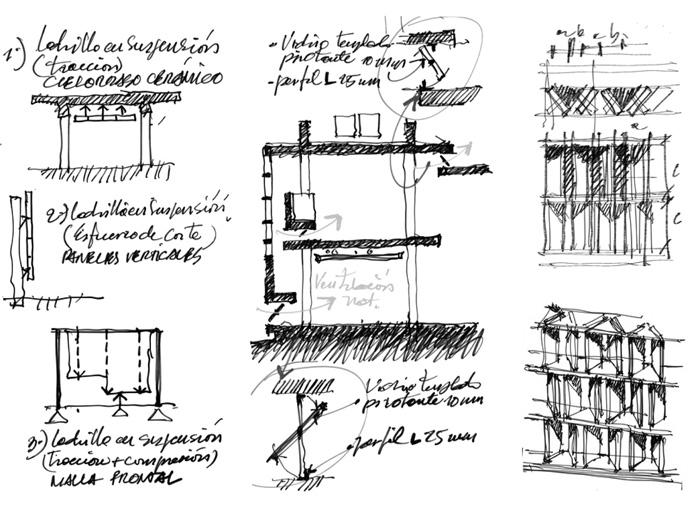 1-) Ladrillo en suspensión
(tracción)
CIELORRASO CERÁMICO
2-) Ladrillo en suspensión
(Esfuerzo de corte)
PANELES VERTICALES
3-) Ladrillo en suspensión
(tracción + compresión)
MALLA FRONTAL
• Vidrio templado
pivotante 10 mm
• perfil L 25 mm
Ventilación
nat.
Vidrio templado
pivotante 10 mm
• perfil L 25 mm
a b a b